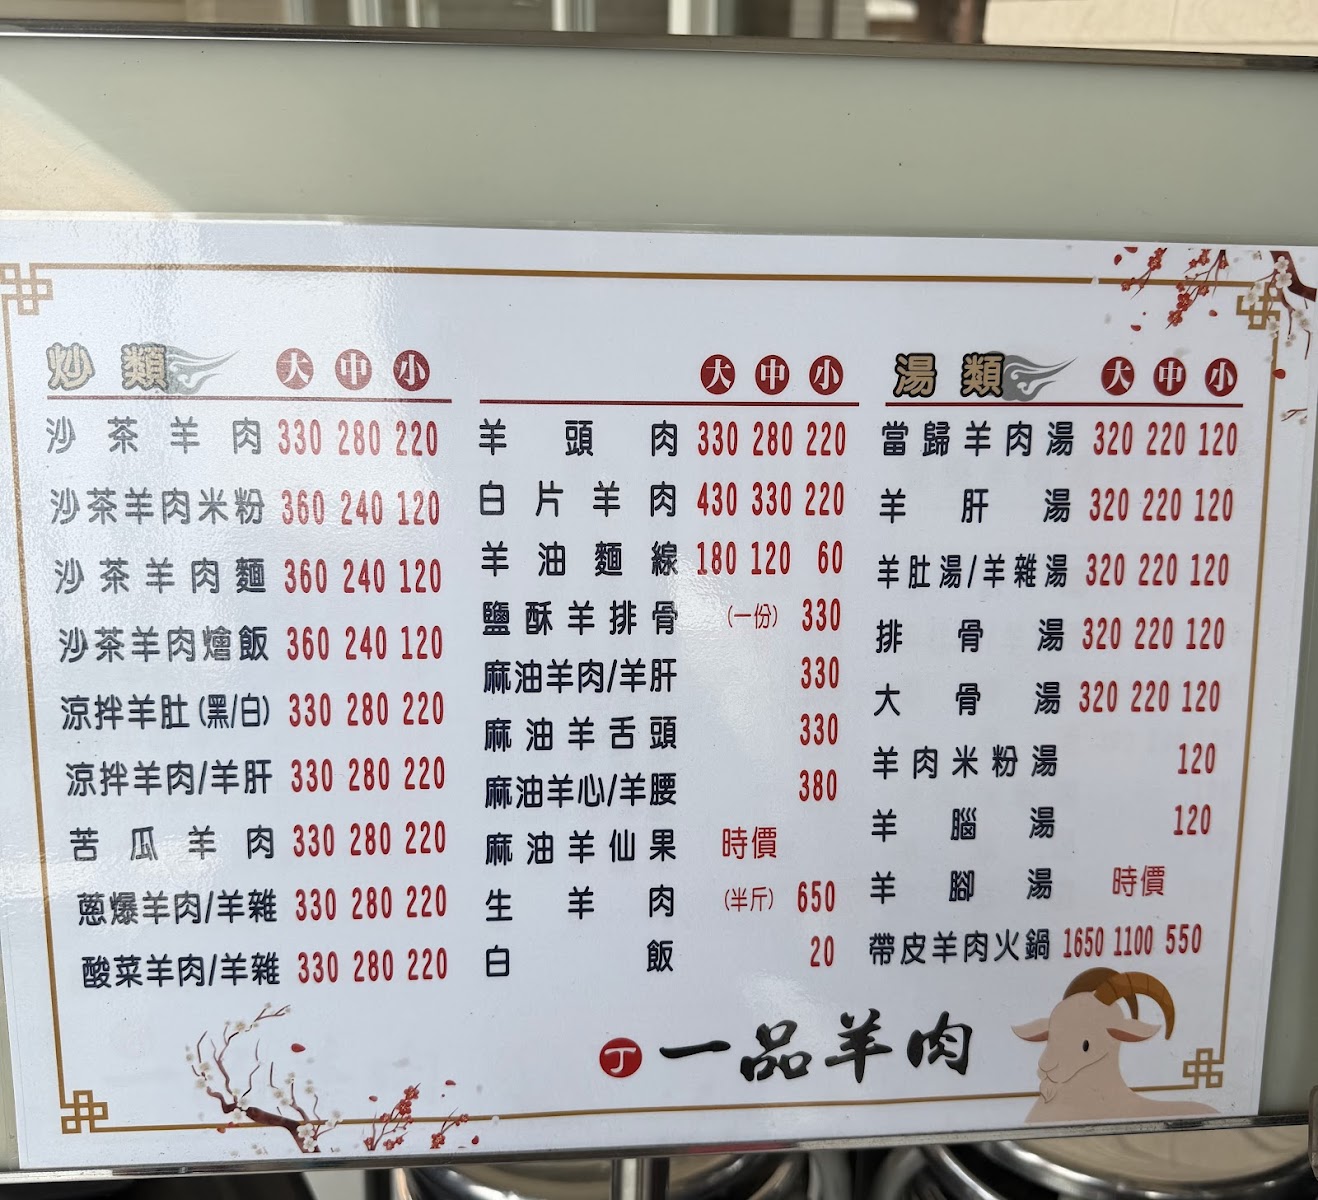 炒類 大 中 小
沙茶羊肉 330 280 220
沙茶羊肉米粉 360 240 120
沙茶羊肉麵 360 240 120
沙茶羊肉燴飯 360 240 120
涼拌羊肚(黑/白) 330 280 220
涼拌羊肉/羊肝 330 280 220
苦瓜羊肉 330 280 220
蔥爆羊肉/羊雜 330 280 220
酸菜羊肉/羊雜 330 280 220
大 中 小
羊頭肉 330 280 220
白片羊肉 430 330 220
羊油麵線 180 120 60
鹽酥羊排骨 (一份) 330
麻油羊肉/羊肝 330
麻油羊舌頭 330
麻油羊心/羊腰 380
麻油羊仙果 時價
生羊肉 (半斤) 650
白飯 20
湯類 大 中 小
當歸羊肉湯 320 220 120
羊肝湯 320 220 120
羊肚湯/羊雜湯 320 220 120
排骨湯 320 220 120
大骨湯 320 220 120
羊肉米粉湯 120
羊腦湯 120
羊腳湯 時價
帶皮羊肉火鍋 1650 1100 550
丁 一品羊肉